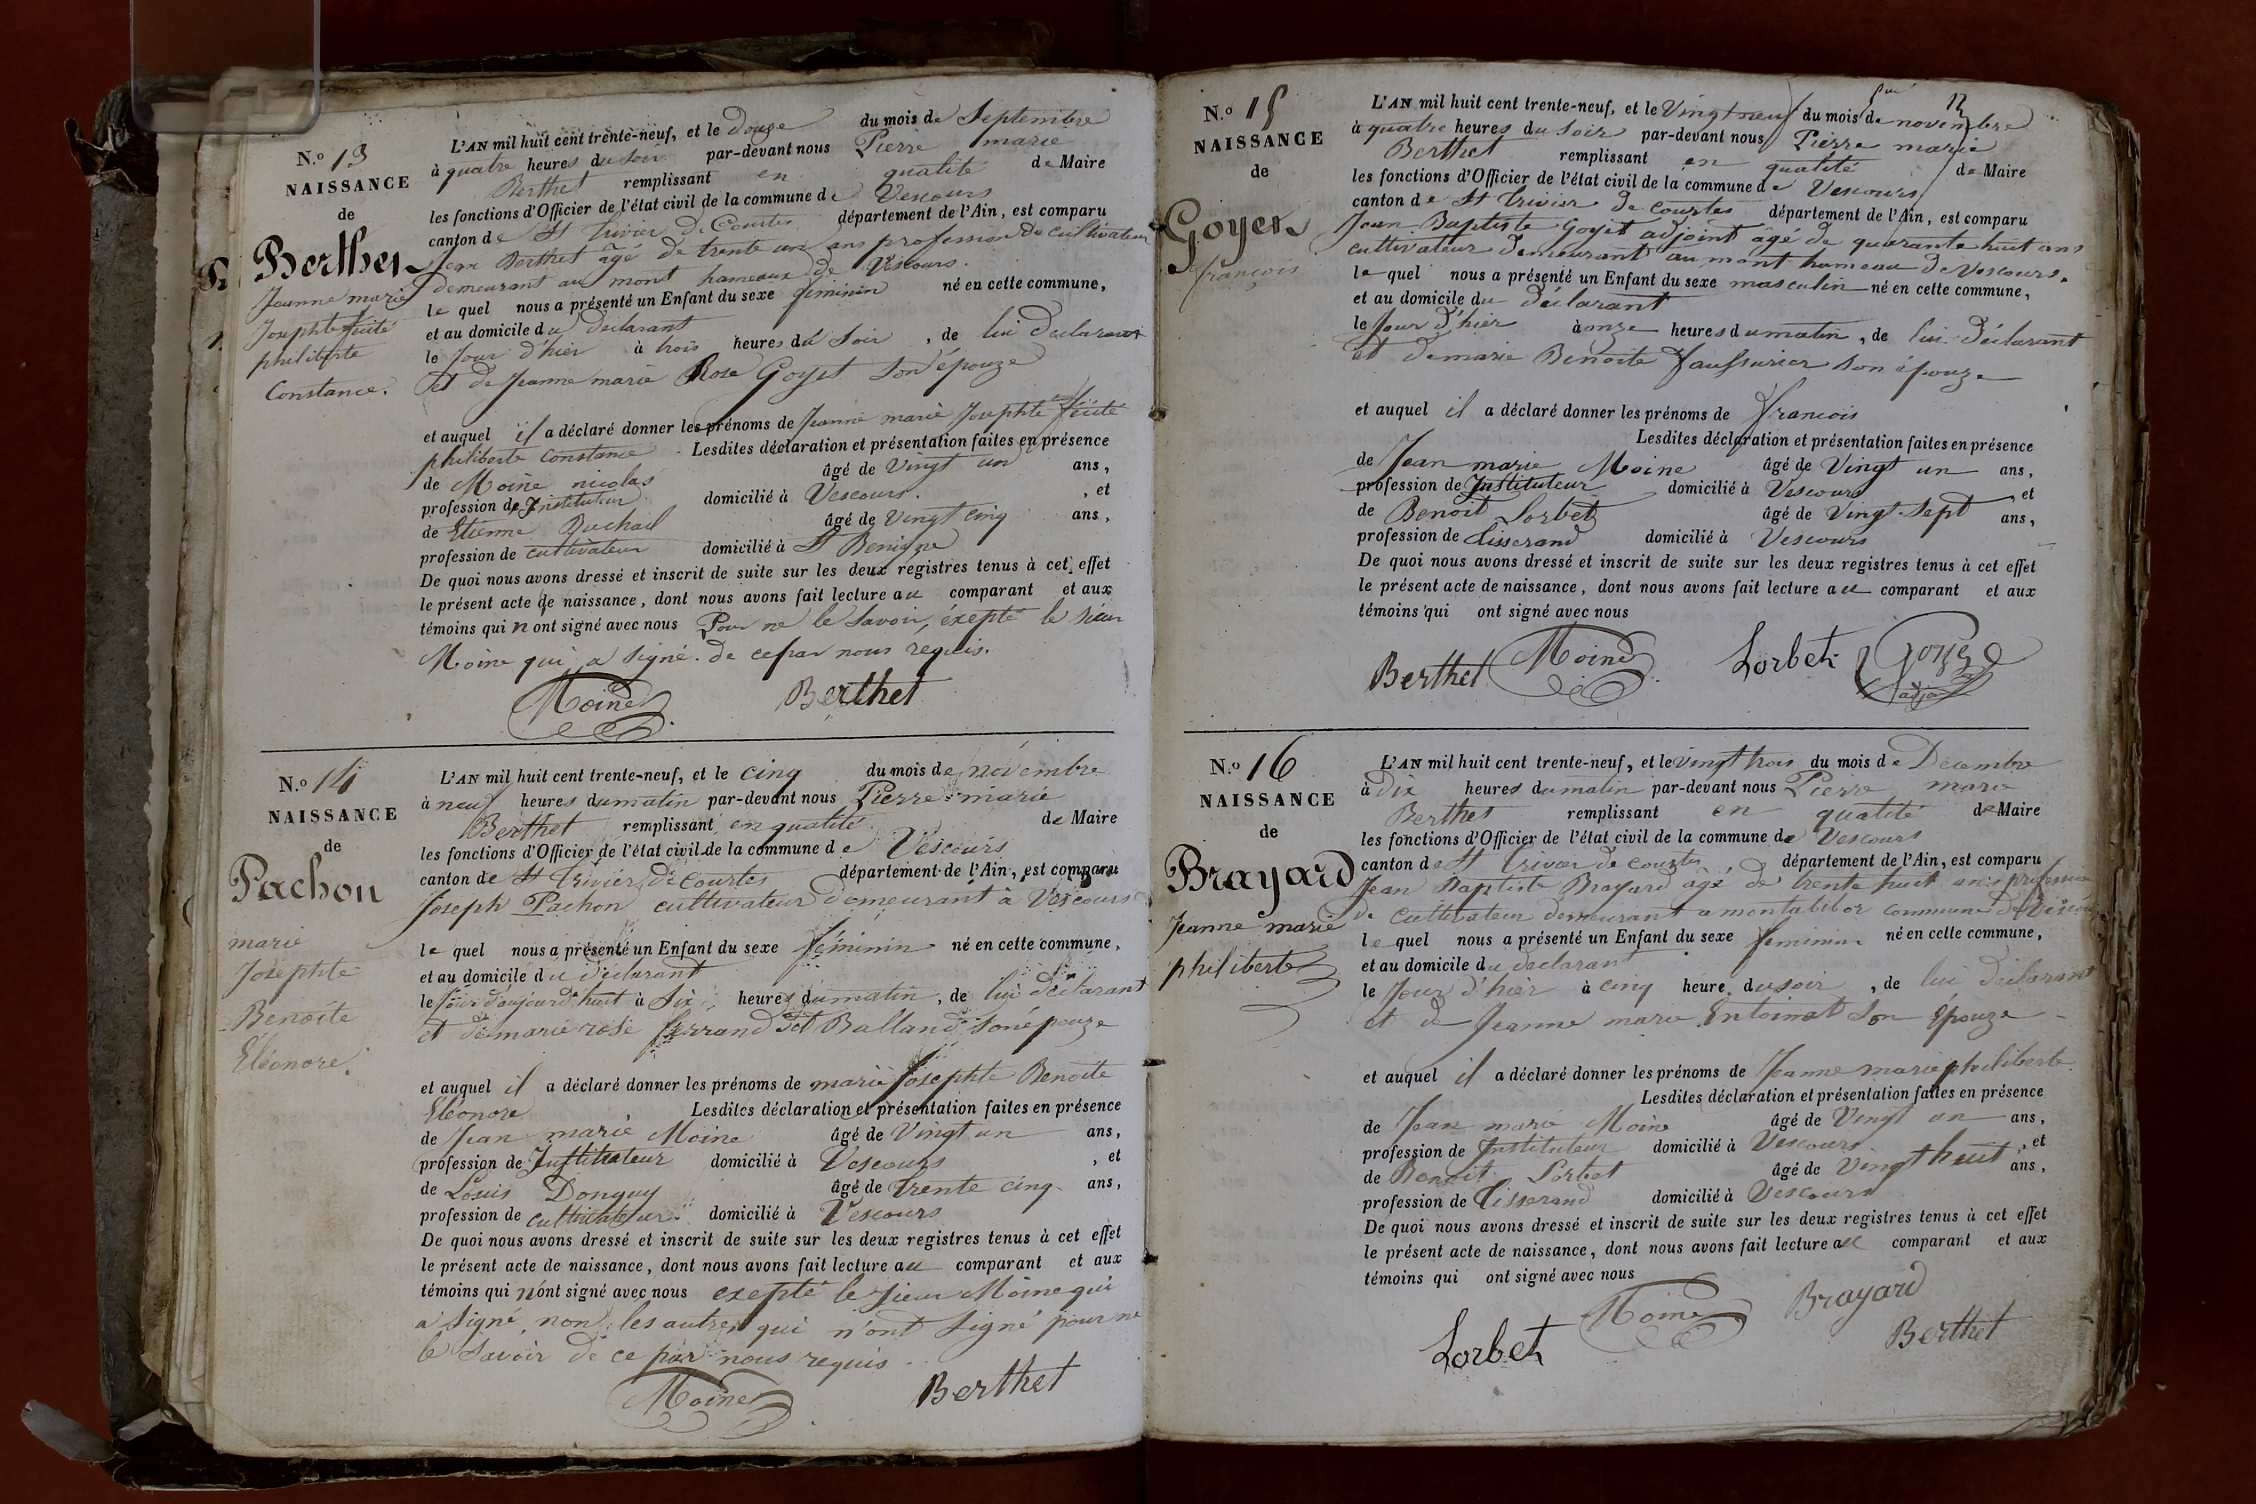 N.o 13
NAISSANCE
de
Berthet
Jeanne marie
Josephte féicité
philiberte
Constance.
L'AN mil huit cent trente-neuf, et le douze du mois de Septembre
à quatre heures du soir par-devant nous Pierre marie
Berthet remplissant en qualité de Maire
les fonctions d'Officier de l'état civil de la commune de Vescours
canton de St Trivier de Courtes département de l'Ain, est comparu
Jean Berthet âgé de trente un ans profession de cultivateur
demeurant au mont hameaux de Vescours.
le quel nous a présenté un Enfant du sexe féminin né en cette commune,
et au domicile du declarant
le Jour d'hier à trois heures du Soir, de lui declarant
et de Jeanne marie Rose Goyet son épouze
et auquel il a déclaré donner les prénoms de Jeanne marie Josephte
philiberte constance. Lesdites déclaration et présentation faites en présence
de Moine nicolas âgé de Vingt un ans,
profession de Instituteur domicilié à Vescours. , et
de Etienne Duchail âgé de Vingt cinq ans,
profession de cultivateur domicilié à St Benigne
De quoi nous avons dressé et inscrit de suite sur les deux registres tenus à cet effet
le présent acte de naissance, dont nous avons fait lecture au comparant et aux
témoins qui n ont signé avec nous Pour ne le Savoir, éxepté le sieur
Moine qui a signé. de ce par nous requis.
Moine Berthet
N.o 14
NAISSANCE
de
Pachon
marie
Josephte
Benoite
Eléonore.
L'AN mil huit cent trente-neuf, et le cinq du mois de novembre
à neuf heures du matin par-devant nous Pierre marie
Berthet remplissant en qualité de Maire
les fonctions d'Officier de l'état civil de la commune de Vescours
canton de St Trivier de Courtes département de l'Ain, est comparu
Joseph Pachon cultivateur demeurant à Vescours
le quel nous a présenté un Enfant du sexe féminin né en cette commune,
et au domicile du déclarant
le Jour d'aujourd'huit à Six heures du matin, de lui déclarant
et de marie rose ferrand dit Balland son épouze
et auquel il a déclaré donner les prénoms de marie Josephte Benoite
Eléonore Lesdites déclaration et présentation faites en présence
de Jean marie Moine âgé de Vingt un ans,
profession de Instituteur domicilié à Vescours , et
de Louis Donguy âgé de trente cinq ans,
profession de cultivateur domicilié à Vescours
De quoi nous avons dressé et inscrit de suite sur les deux registres tenus à cet effet
le présent acte de naissance, dont nous avons fait lecture au comparant et aux
témoins qui n'ont signé avec nous exepté le sieur Moine qui
a Signé, non les autres qui n'ont Signé pour ne
le Savoir de ce par nous requis.
Moine Berthet
13
N.o 15
NAISSANCE
de
Goyet
françois
L'AN mil huit cent trente-neuf, et le Vingt neuf du mois de novembre
à quatre heures du Soir par-devant nous Pierre marie
Berthet remplissant en qualité de Maire
les fonctions d'Officier de l'état civil de la commune de Vescours
canton de St Trivier de Courtes département de l'Ain, est comparu
Jean Baptiste Goyet adjoint âgé de quarante huit ans
cultivateur demeurant au mont hameau de Vescours.
le quel nous a présenté un Enfant du sexe masculin né en cette commune,
et au domicile du déclarant
le Jour d'hier à onze heures du matin, de lui déclarant
et de marie Benoite faussurier son épouze
et auquel il a déclaré donner les prénoms de francois
Lesdites déclaration et présentation faites en présence
de Jean marie Moine âgé de Vingt un ans,
profession de Instituteur domicilié à Vescours , et
de Benoit Lorbet âgé de Vingt Sept ans,
profession de Tisserand domicilié à Vescours
De quoi nous avons dressé et inscrit de suite sur les deux registres tenus à cet effet
le présent acte de naissance, dont nous avons fait lecture au comparant et aux
témoins qui ont signé avec nous
Berthet Moine Lorbet Goyet
adjoint
N.o 16
NAISSANCE
de
Brayard
Jeanne marie
philiberte
L'AN mil huit cent trente-neuf, et le vingt trois du mois de Décembre
à dix heures du matin par-devant nous Pierre marie
Berthet remplissant en qualité de Maire
les fonctions d'Officier de l'état civil de la commune de Vescours
canton de St Trivier de courtes département de l'Ain, est comparu
Jean Baptiste Brayard âgé de trente huit ans profession
de Cultivateur demeurant a montalibor commune de Vescours
le quel nous a présenté un Enfant du sexe feminin né en cette commune,
et au domicile du declarant
le Jour d'hier à cinq heure du soir, de lui déclarant
et de Jeanne marie Entoinat Son Épouze
et auquel il a déclaré donner les prénoms de Jeanne marie philiberte
Lesdites déclaration et présentation faites en présence
de Jean marie Moine âgé de Vingt un ans,
profession de Instituteur domicilié à Vescours , et
de Benoit Lorbet âgé de Vingt huit ans,
profession de Tisserand domicilié à Vescours
De quoi nous avons dressé et inscrit de suite sur les deux registres tenus à cet effet
le présent acte de naissance, dont nous avons fait lecture au comparant et aux
témoins qui ont signé avec nous
Lorbet Moine Brayard
Berthet